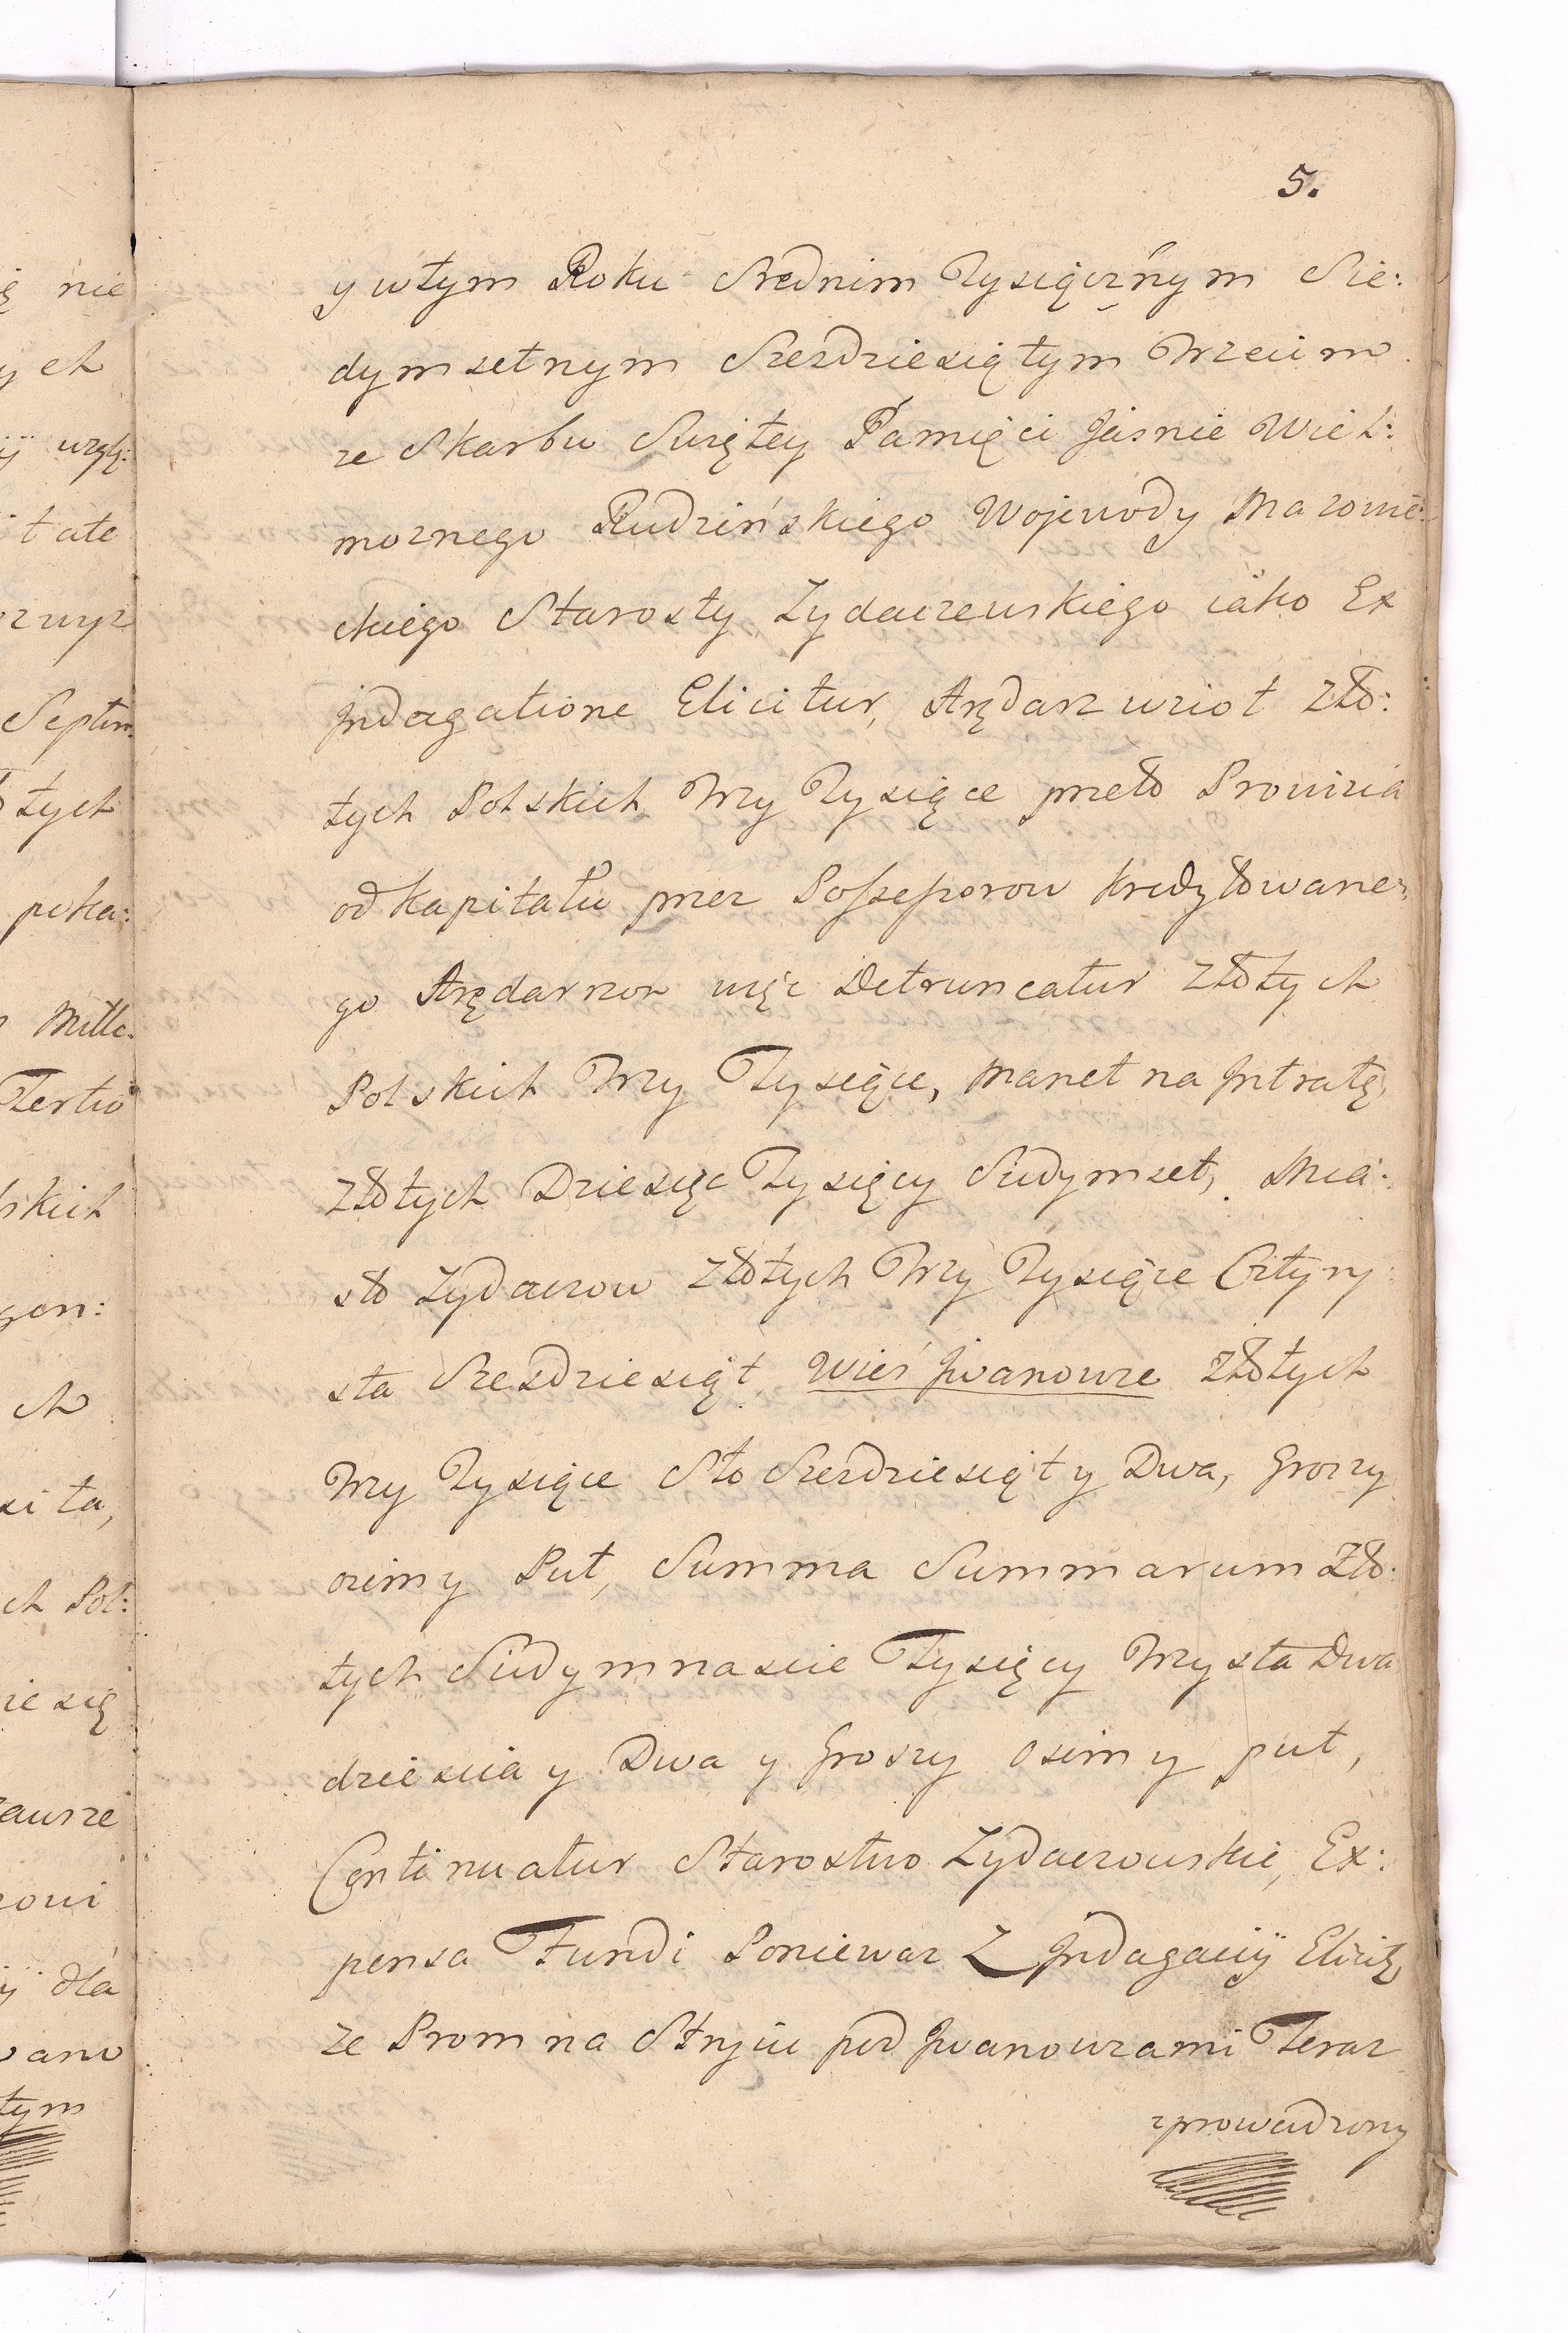 5.
ę nie
y ch
ij wzglę:
tate
Septim
tych
poka:
Mille
Tertio
skich
ch
ch Pol:
ie się
zawsze
rowi
ij dla
tym
y wtym Roku Srednim Tysiącznym Sie:
dymsetnym Szesdziesiątym Trzecim
ze Skarbu Swiętey Pamięci Jasnie Wiel:
moznego Rudzińskiego Wojewody Mazowie
ckiego Starosty Zydaczewskiego iako Ex
Jndagatione Elicitur, Arędarz wzioł Zło:
tych Polskich Trzy Tysiące przeto Prowizia
od Kapitału przez Possessorow kredytowane:
go Arędarzow więc Detruncatur Złotych
Polskich Trzy Tysiące, Manet na Jntratę,
Złotych Dziesięc Tysięcy Siedymset, Mia:
sto Zydaczow Złotych Trzy Tysiące Cztyry:
sta Szesdziesiąt, Wieś Jwanowce Złotych
Trzy Tysiące Sto Szesdziesiąt y Dwa, Groszy
osim y Puł, Summa Summarum Zło:
tych Siedymnascie Tysięcy Trzysta Dwa
dziescia y Dwa y Groszy Osim y puł,
Continuatur Starostwo Zydaczowskie, Ex:
pensa Fundi Poniewaz Z Jndagacij Elicitr,
ze Prom na Stryiu pod Jwanowcami Teraz
zprowadzony